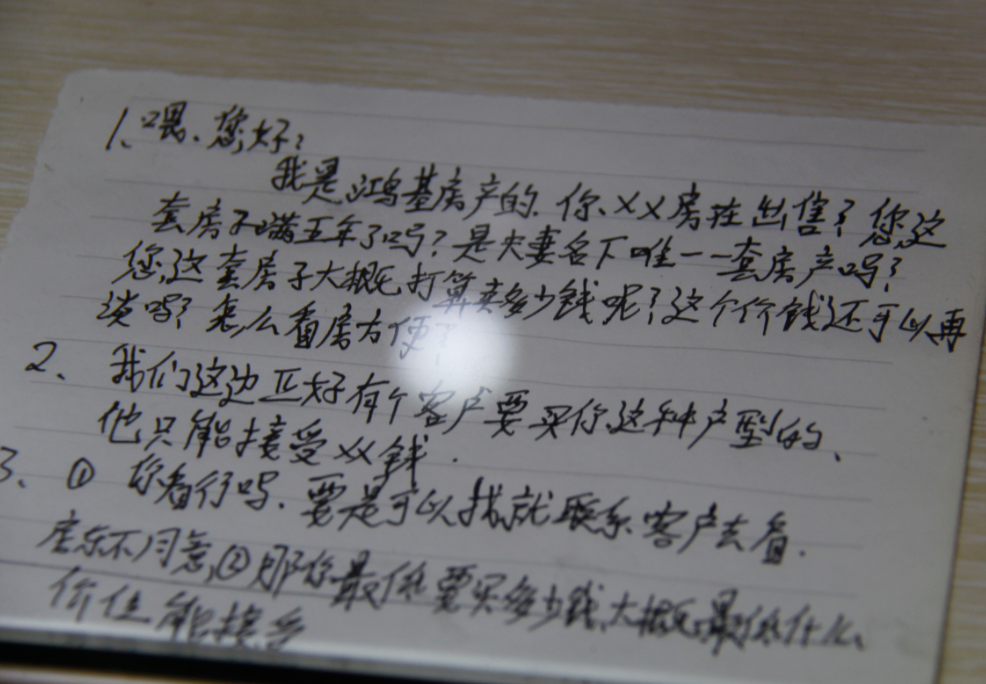 1、喂、您好:
我是鸿基房产的、你、XX房在出售?您这
套房子满五年了吗?是夫妻名下唯一一套房产吗?
您,这套房子大概打算卖多少钱呢?这个价钱还可以再
谈吗?怎么看房方便?
2、我们这边正好有个客户要买你这种户型的、
他只能接受XX钱.
3、① 你看行吗、要是可以我就联系客户去看.
房东不同意,②那您最低要买多少钱、大概最低什么
价位能接受